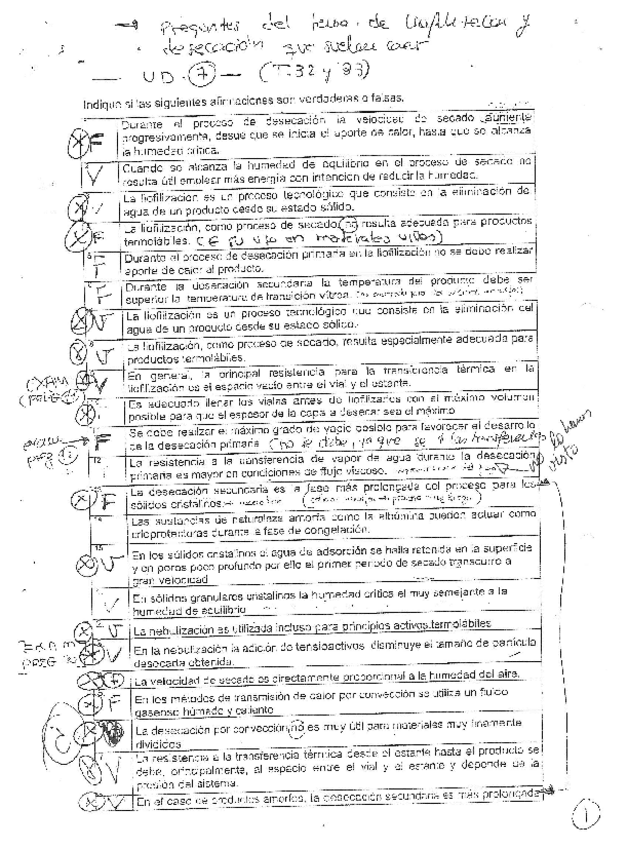 → Preguntas del tema de liofilización y
desecación que suelen caer
— UD. 7 — (T.32 y 33)
Indique si las siguientes afirmaciones son verdaderas o falsas.
F Durante el proceso de desecación la velocidad de secado aumenta
progresivamente, desde que se inicia el aporte de calor, hasta que se alcanza
la humedad crítica.
V Cuando se alcanza la humedad de equilibrio en el proceso de secado no
resulta útil emplear más energía con intención de reducir la humedad.
V La liofilización es un proceso tecnológico que consiste en la eliminación de
agua de un producto desde su estado sólido.
F La liofilización, como proceso de secado, no resulta adecuada para productos
termolábiles. (E su uso en materiales vivos)
F Durante el proceso de desecación primaria en la liofilización no se debe realizar
aporte de calor al producto.
F Durante la desecación secundaria la temperatura del producto debe ser
superior la temperatura de transición vítrea.
V La liofilización es un proceso tecnológico que consiste en la eliminación del
agua de un producto desde su estado sólido.
V La liofilización, como proceso de secado, resulta especialmente adecuada para
productos termolábiles.
V En general, la principal resistencia para la transferencia térmica en la
liofilización es el espacio vacío entre el vial y el estante.
Es adecuado llenar los viales antes de liofilizarlos con el máximo volumen
posible para que el espesor de la capa a desecar sea el máximo
11 F Se debe realizar el máximo grado de vacío posible para favorecer el desarrollo
de la desecación primaria (no se debe, ya que se
12 La resistencia a la transferencia de vapor de agua durante la desecación
primaria es mayor en condiciones de flujo viscoso. no lo hemos visto
F La desecación secundaria es la fase más prolongada del proceso para los
sólidos cristalinos
14 Las sustancias de naturaleza amorfa como la albúmina pueden actuar como
crioprotectoras durante la fase de congelación.
15 V En los sólidos cristalinos el agua de adsorción se halla retenida en la superficie
y en poros poco profundo por ello el primer periodo de secado transcurre a
gran velocidad
V En sólidos granulares cristalinos la humedad crítica el muy semejante a la
humedad de equilibrio
V La nebulización es utilizada incluso para principios activos termolábiles
V En la nebulización la adición de tensioactivos disminuye el tamaño de partícula
desecada obtenida.
F La velocidad de secado es directamente proporcional a la humedad del aire.
F En los métodos de transmisión de calor por convección se utiliza un fluido
gaseoso húmedo y caliente
La desecación por convección no es muy útil para materiales muy finamente
divididos
V La resistencia a la transferencia térmica desde el estante hasta el producto se
debe, principalmente, al espacio entre el vial y el estante y depende de la
presión del sistema.
V En el caso de productos amorfos, la desecación secundaria es más prolongada
1